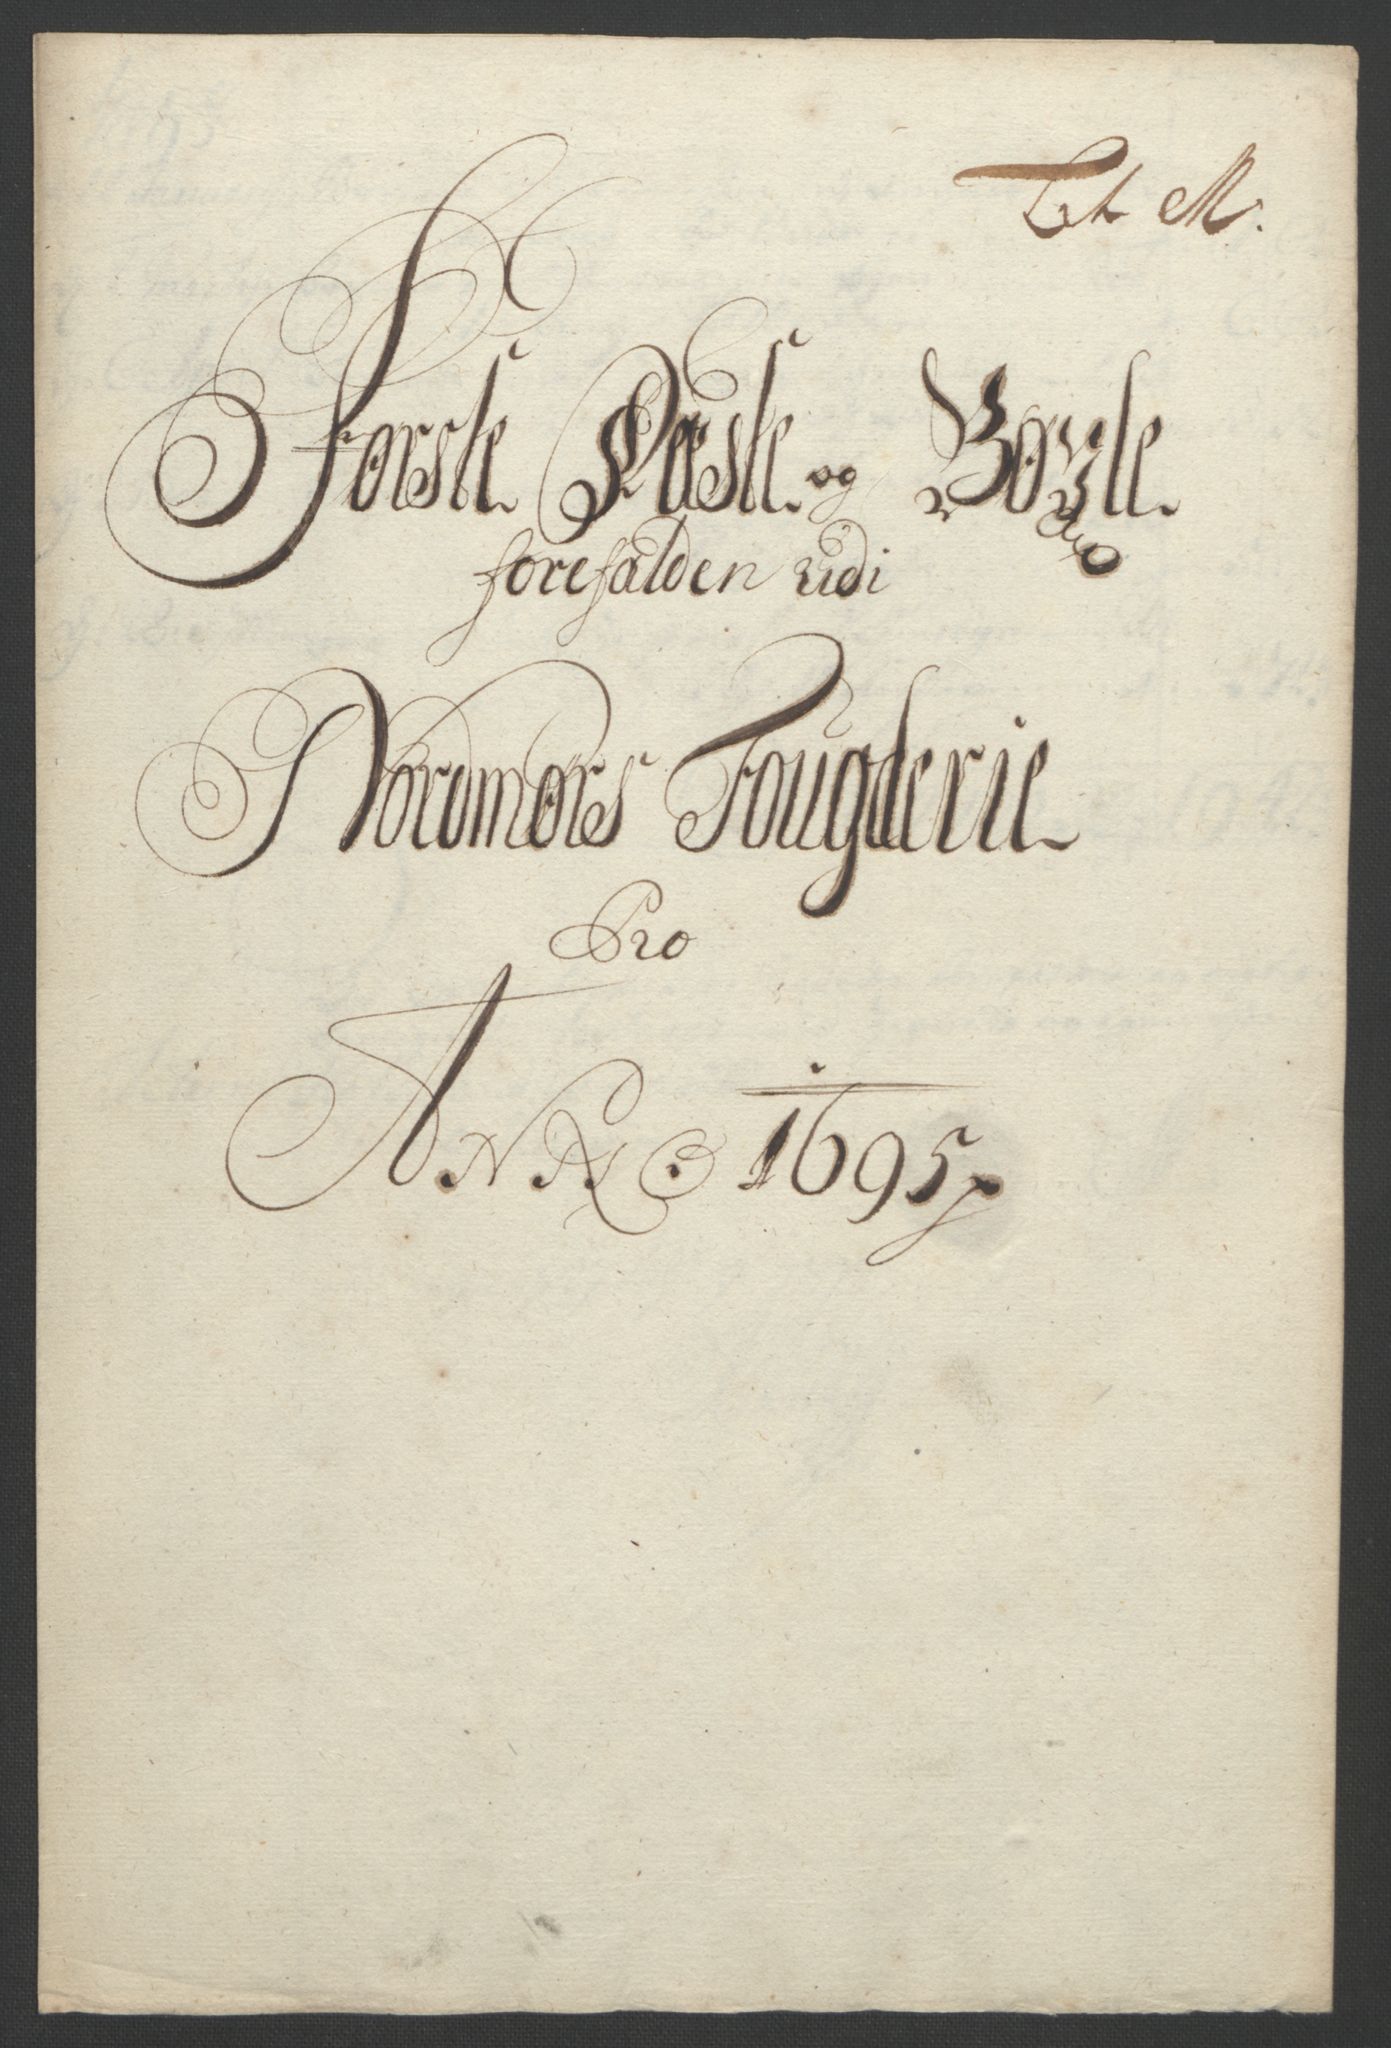 Lit M.
Første Røste og Bøxle
forefalden udi
Nordmørs Fougderie
Pro
ANNO 1695